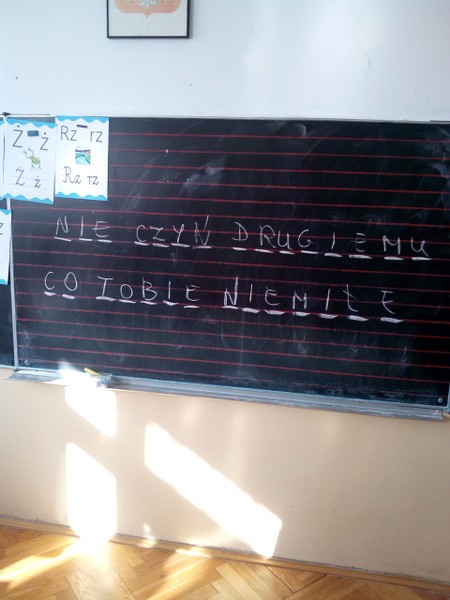 Ż ż
Ż ż
Rz rz
Rz rz
NIE CZYŃ DRUGIEMU
CO TOBIE NIEMIŁE